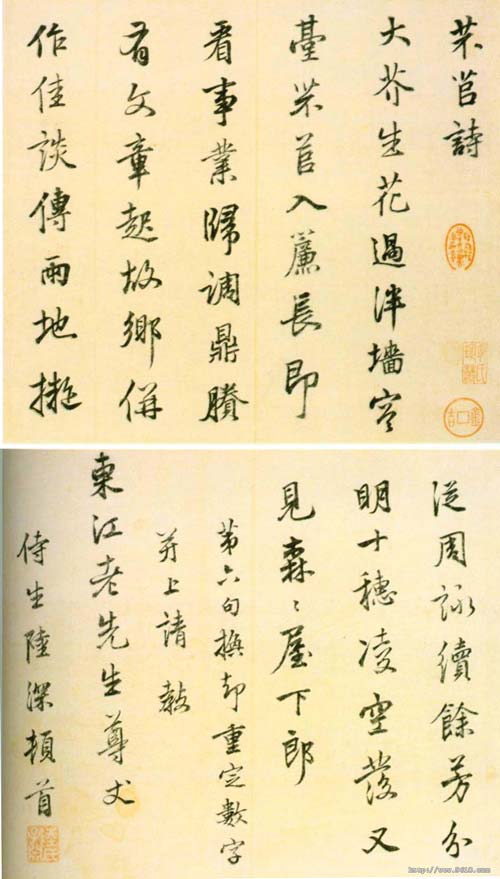 芣苢詩
大芥生花過泮墻
臺芣苢入簾長即
看事業歸調鼎賸
有文章起故鄉併
作佳談傳兩地擬
從周詠續餘芳分
明十穗凌空發又
見森〻屋下郎
第六句却重定數字
并上請教
東江老先生尊丈
侍生陸深頓首
http://www.9610.com